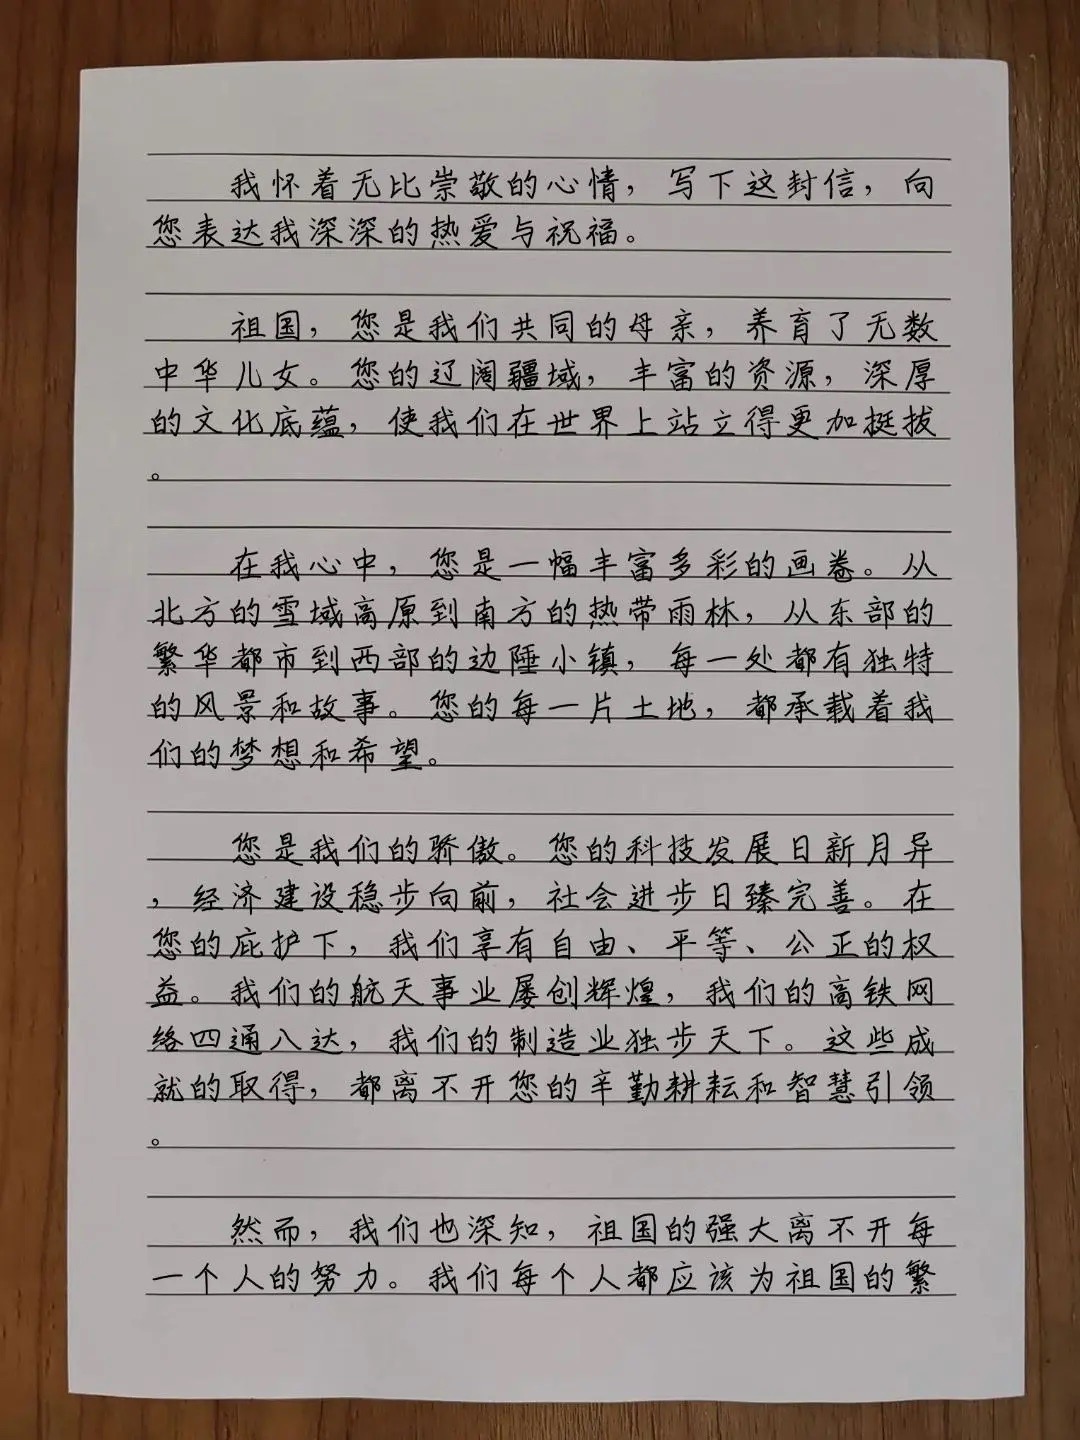 我怀着无比崇敬的心情，写下这封信，向
您表达我深深的热爱与祝福。
祖国，您是我们共同的母亲，养育了无数
中华儿女。您的辽阔疆域，丰富的资源，深厚
的文化底蕴，使我们在世界上站立得更加挺拔
。
在我心中，您是一幅丰富多彩的画卷。从
北方的雪域高原到南方的热带雨林，从东部的
繁华都市到西部的边陲小镇，每一处都有独特
的风景和故事。您的每一片土地，都承载着我
们的梦想和希望。
您是我们的骄傲。您的科技发展日新月异
，经济建设稳步向前，社会进步日臻完善。在
您的庇护下，我们享有自由、平等、公正的权
益。我们的航天事业屡创辉煌，我们的高铁网
络四通八达，我们的制造业独步天下。这些成
就的取得，都离不开您的辛勤耕耘和智慧引领
。
然而，我们也深知，祖国的强大离不开每
一个人的努力。我们每个人都应该为祖国的繁